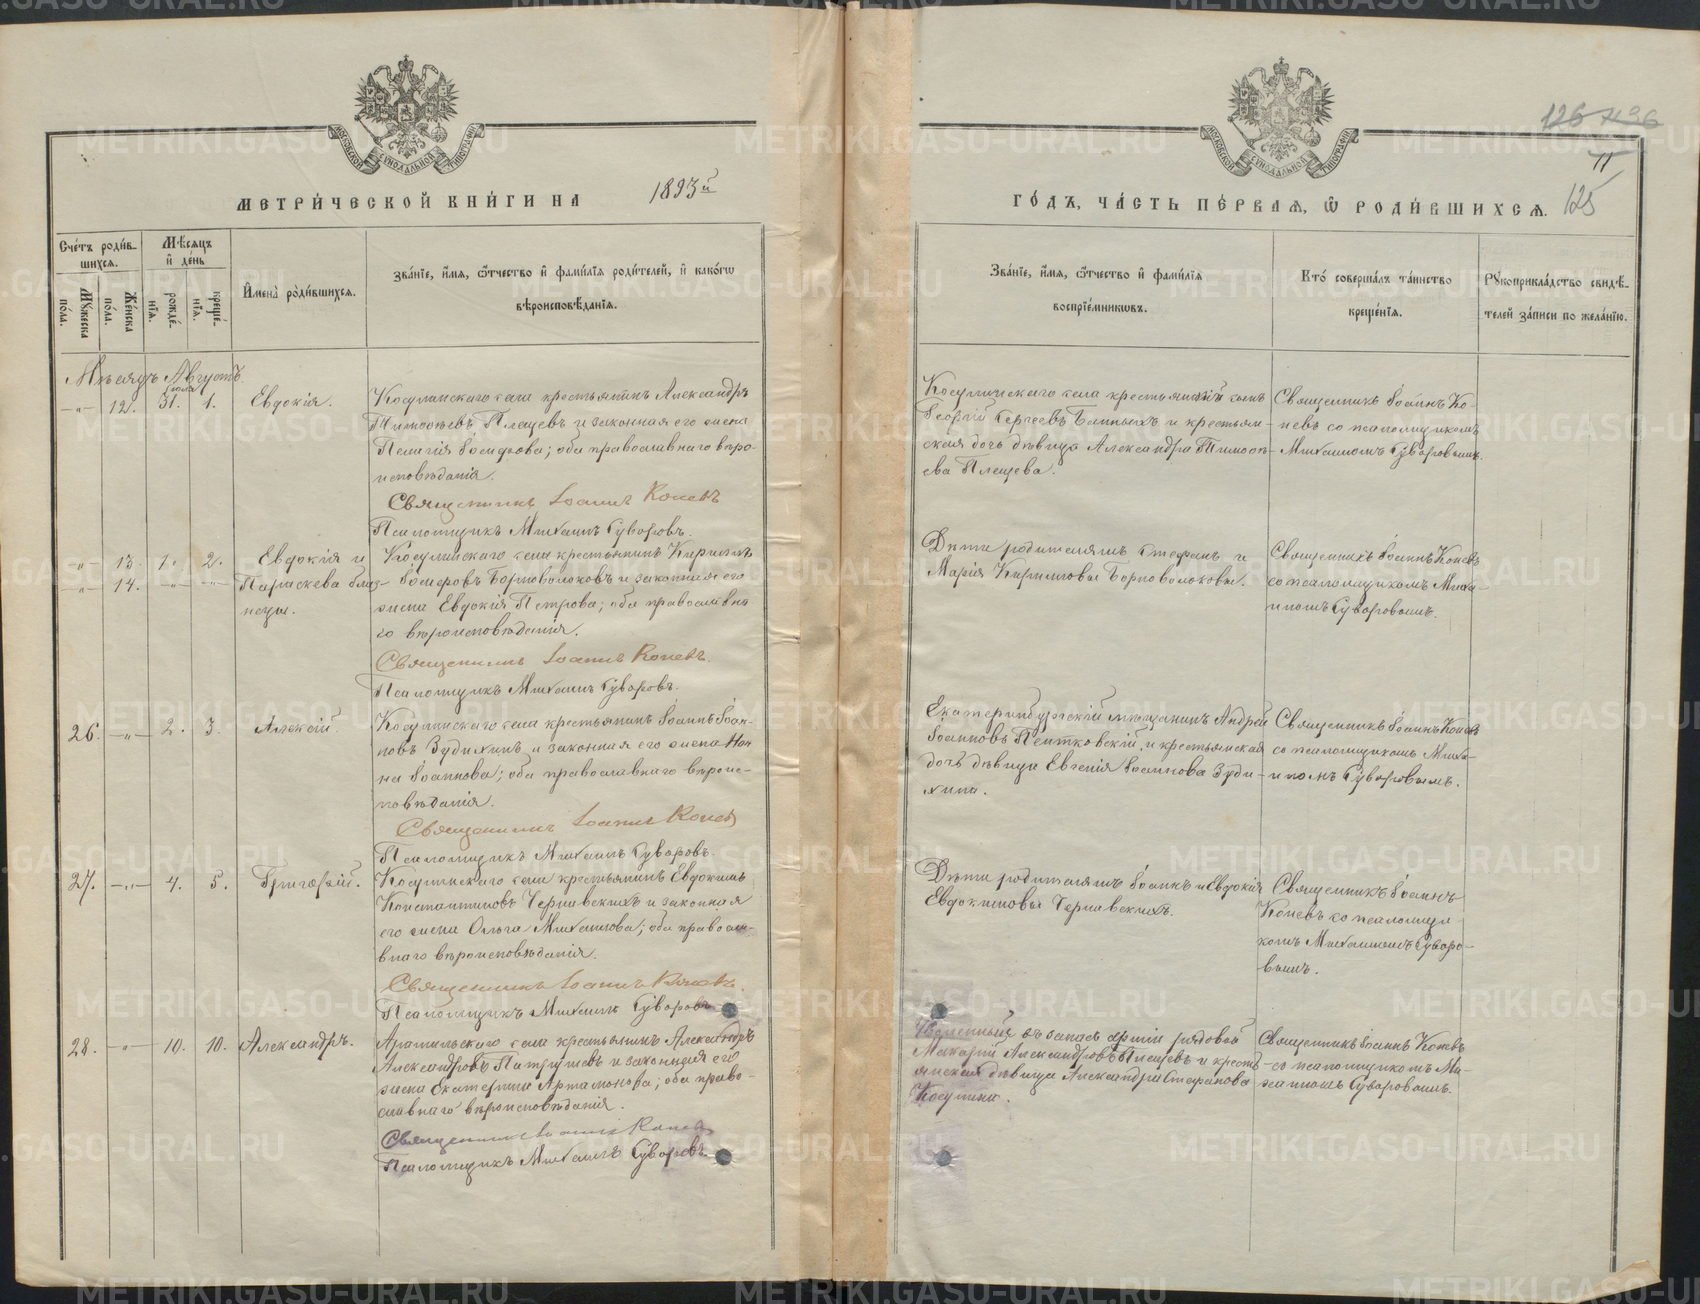 126 1136
11
125
МОСКОВСКОЙ СѴНОДАЛЬНОЙ ТИПОГРАФІИ
МОСКОВСКОЙ СѴНОДАЛЬНОЙ ТИПОГРАФІИ
МЕТРИ́ЧЕСКОЙ КНИ́ГИ НА 1893й
ГО́ДЪ, ЧА́СТЬ ПЕ́РВАЯ, Ѡ РОДИ́ВШИХСЯ.
Сче́тъ роди́вшихся.
Му́жеска по́ла.
Же́нска по́ла.
Мѣ́сяцъ и де́нь
рожде́нїя.
креще́нїя.
И҆мена̀ роди́вшихся.
Зва́нїе, и҆́мя, ѻ҆́тчество и҆ фами́лїя роди́телей, и҆ како́гѡ
вѣроисповѣ́данїя.
Зва́нїе, и҆́мя, ѻ҆́тчество и҆ фами́лїя
воспрїе́мникѡвъ.
Кто́ соверша́лъ та́инство
креще́нїя.
Рꙋкоприкла́дство свидѣ́-
телей за́писи по жела́нїю.
Мѣсяцъ Августъ
Іюля
—"— 12. 31. 1. Евдокія.
Косулинскаго села крестьянинъ Александръ
Тимоѳеевъ Плещевъ и законная его жена
Пелагія Іосифова; оба православнаго вѣро-
исповѣданія.
Священникъ Іоаннъ Коневъ
Псаломщикъ Михаилъ Суворовъ.
Косулинскаго села крестьянскій сынъ
Георгій Сергеевъ Банныхъ и крестьян-
ская дочь дѣвица Александра Тимоѳе-
ева Плещева.
Священникъ Іоаннъ Ко-
невъ со псаломщикомъ
Михаиломъ Суворовымъ.
—"— 13. 1. 2. Евдокія и
—"— 14. —"— —"— Параскева близ-
нецы.
Косулинскаго села крестьянинъ Кириллъ
Іосифовъ Борноволоковъ и законная его
жена Евдокія Петрова; оба православна-
го вѣроисповѣданія.
Священникъ Іоаннъ Коневъ.
Псаломщикъ Михаилъ Суворовъ.
Дѣти родителямъ Стефанъ и
Марія Кирилловы Борноволоковы.
Священникъ Іоаннъ Коневъ
со псаломщикомъ Миха-
иломъ Суворовымъ.
26. —"— 2. 3. Алексій.
Косулинскаго села крестьянинъ Іоаннъ Іоан-
новъ Зудихинъ и законная его жена Нон-
на Іоаннова; оба православнаго вѣроис-
повѣданія.
Священникъ Іоаннъ Коневъ
Псаломщикъ Михаилъ Суворовъ.
Екатеринбургскій мѣщанинъ Андрей
Іоанновъ Пентковскій и крестьянская
дочь дѣвица Евгенія Іоаннова Зуди-
хина.
Священникъ Іоаннъ Коневъ
со псаломщикомъ Миха-
иломъ Суворовымъ.
27. —"— 4. 5. Григорій.
Косулинскаго села крестьянинъ Евдокимъ
Константиновъ Чернавскихъ и законная
его жена Ольга Михаилова; оба правосла-
внаго вѣроисповѣданія.
Священникъ Іоаннъ Коневъ.
Псаломщикъ Михаилъ Суворовъ
Дѣти родителямъ Іоаннъ и Евдокія
Евдокимовы Чернавскихъ.
Священникъ Іоаннъ
Коневъ со псаломщи-
комъ Михаиломъ Суворо-
вымъ.
28. —"— 10. 10. Александръ.
Арамильскаго села крестьянинъ Александръ
Александровъ Патрушевъ и законная его
жена Екатерина Артамонова; оба право-
славнаго вѣроисповѣданія.
Священникъ Іоаннъ Коневъ
Псаломщикъ Михаилъ Суворовъ
Уволенный въ запасъ арміи рядовой
Макарій Александровъ Плещевъ и кресть-
янская дѣвица Александра Стефанова
Косулина.
Священникъ Іоаннъ Коневъ
со псаломщикомъ Ми-
хаиломъ Суворовымъ.
METRIKI.GASO-URAL.RU